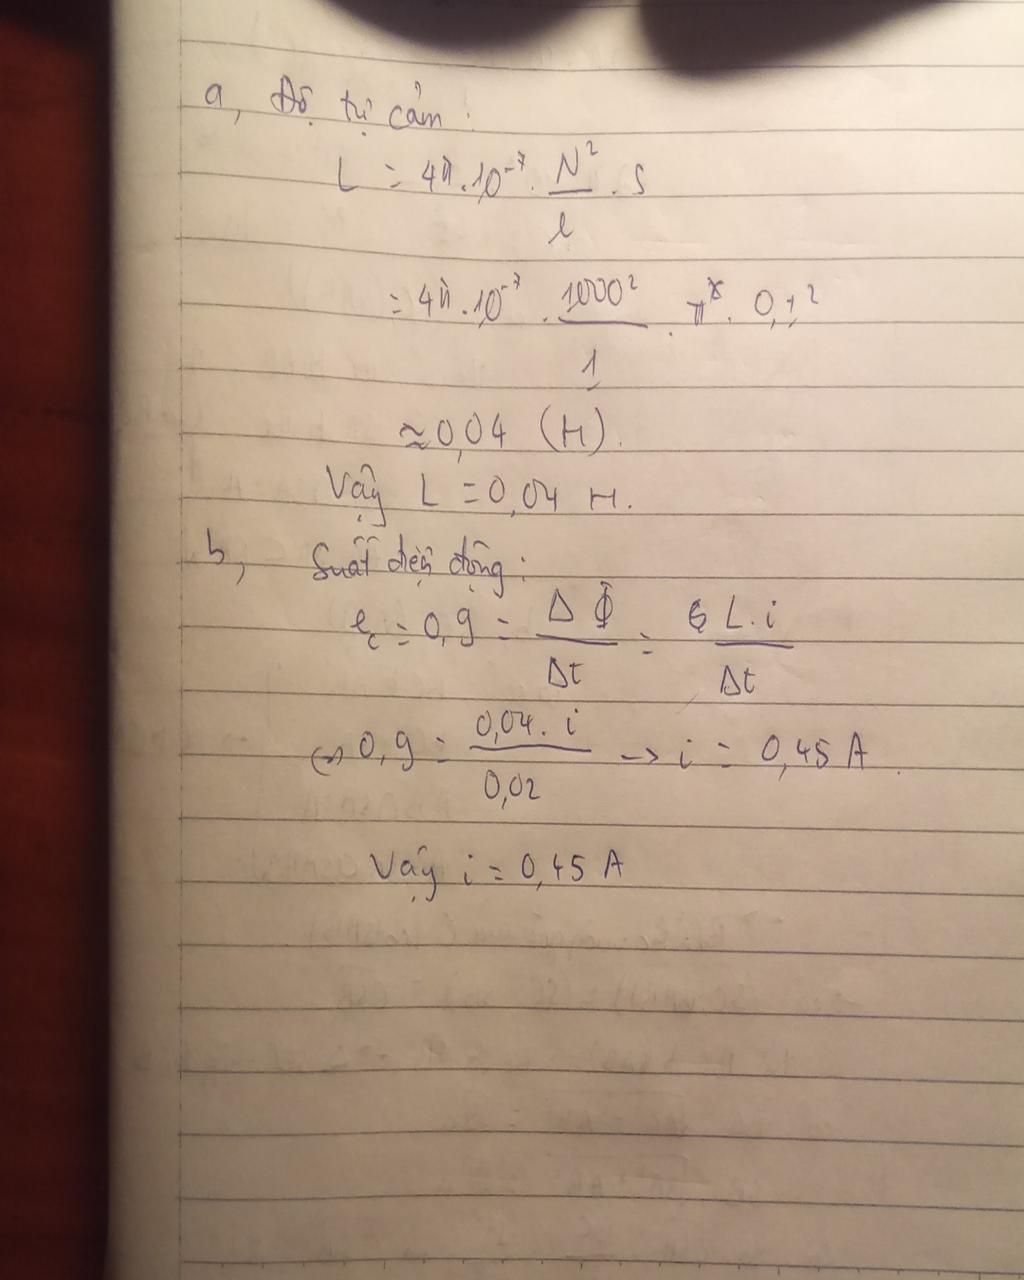 a, Độ tự cảm:
L = 4π.10⁻⁷. N²/l . S
= 4π.10⁻⁷. 1000²/1 . π. 0,1²
≈ 0,04 (H).
Vậy L = 0,04 H.
b, Suất điện động:
e_c = 0,9 = ΔΦ/Δt = L.i/Δt
↔ 0,9 = 0,04.i/0,02 → i = 0,45 A.
Vậy i = 0,45 A